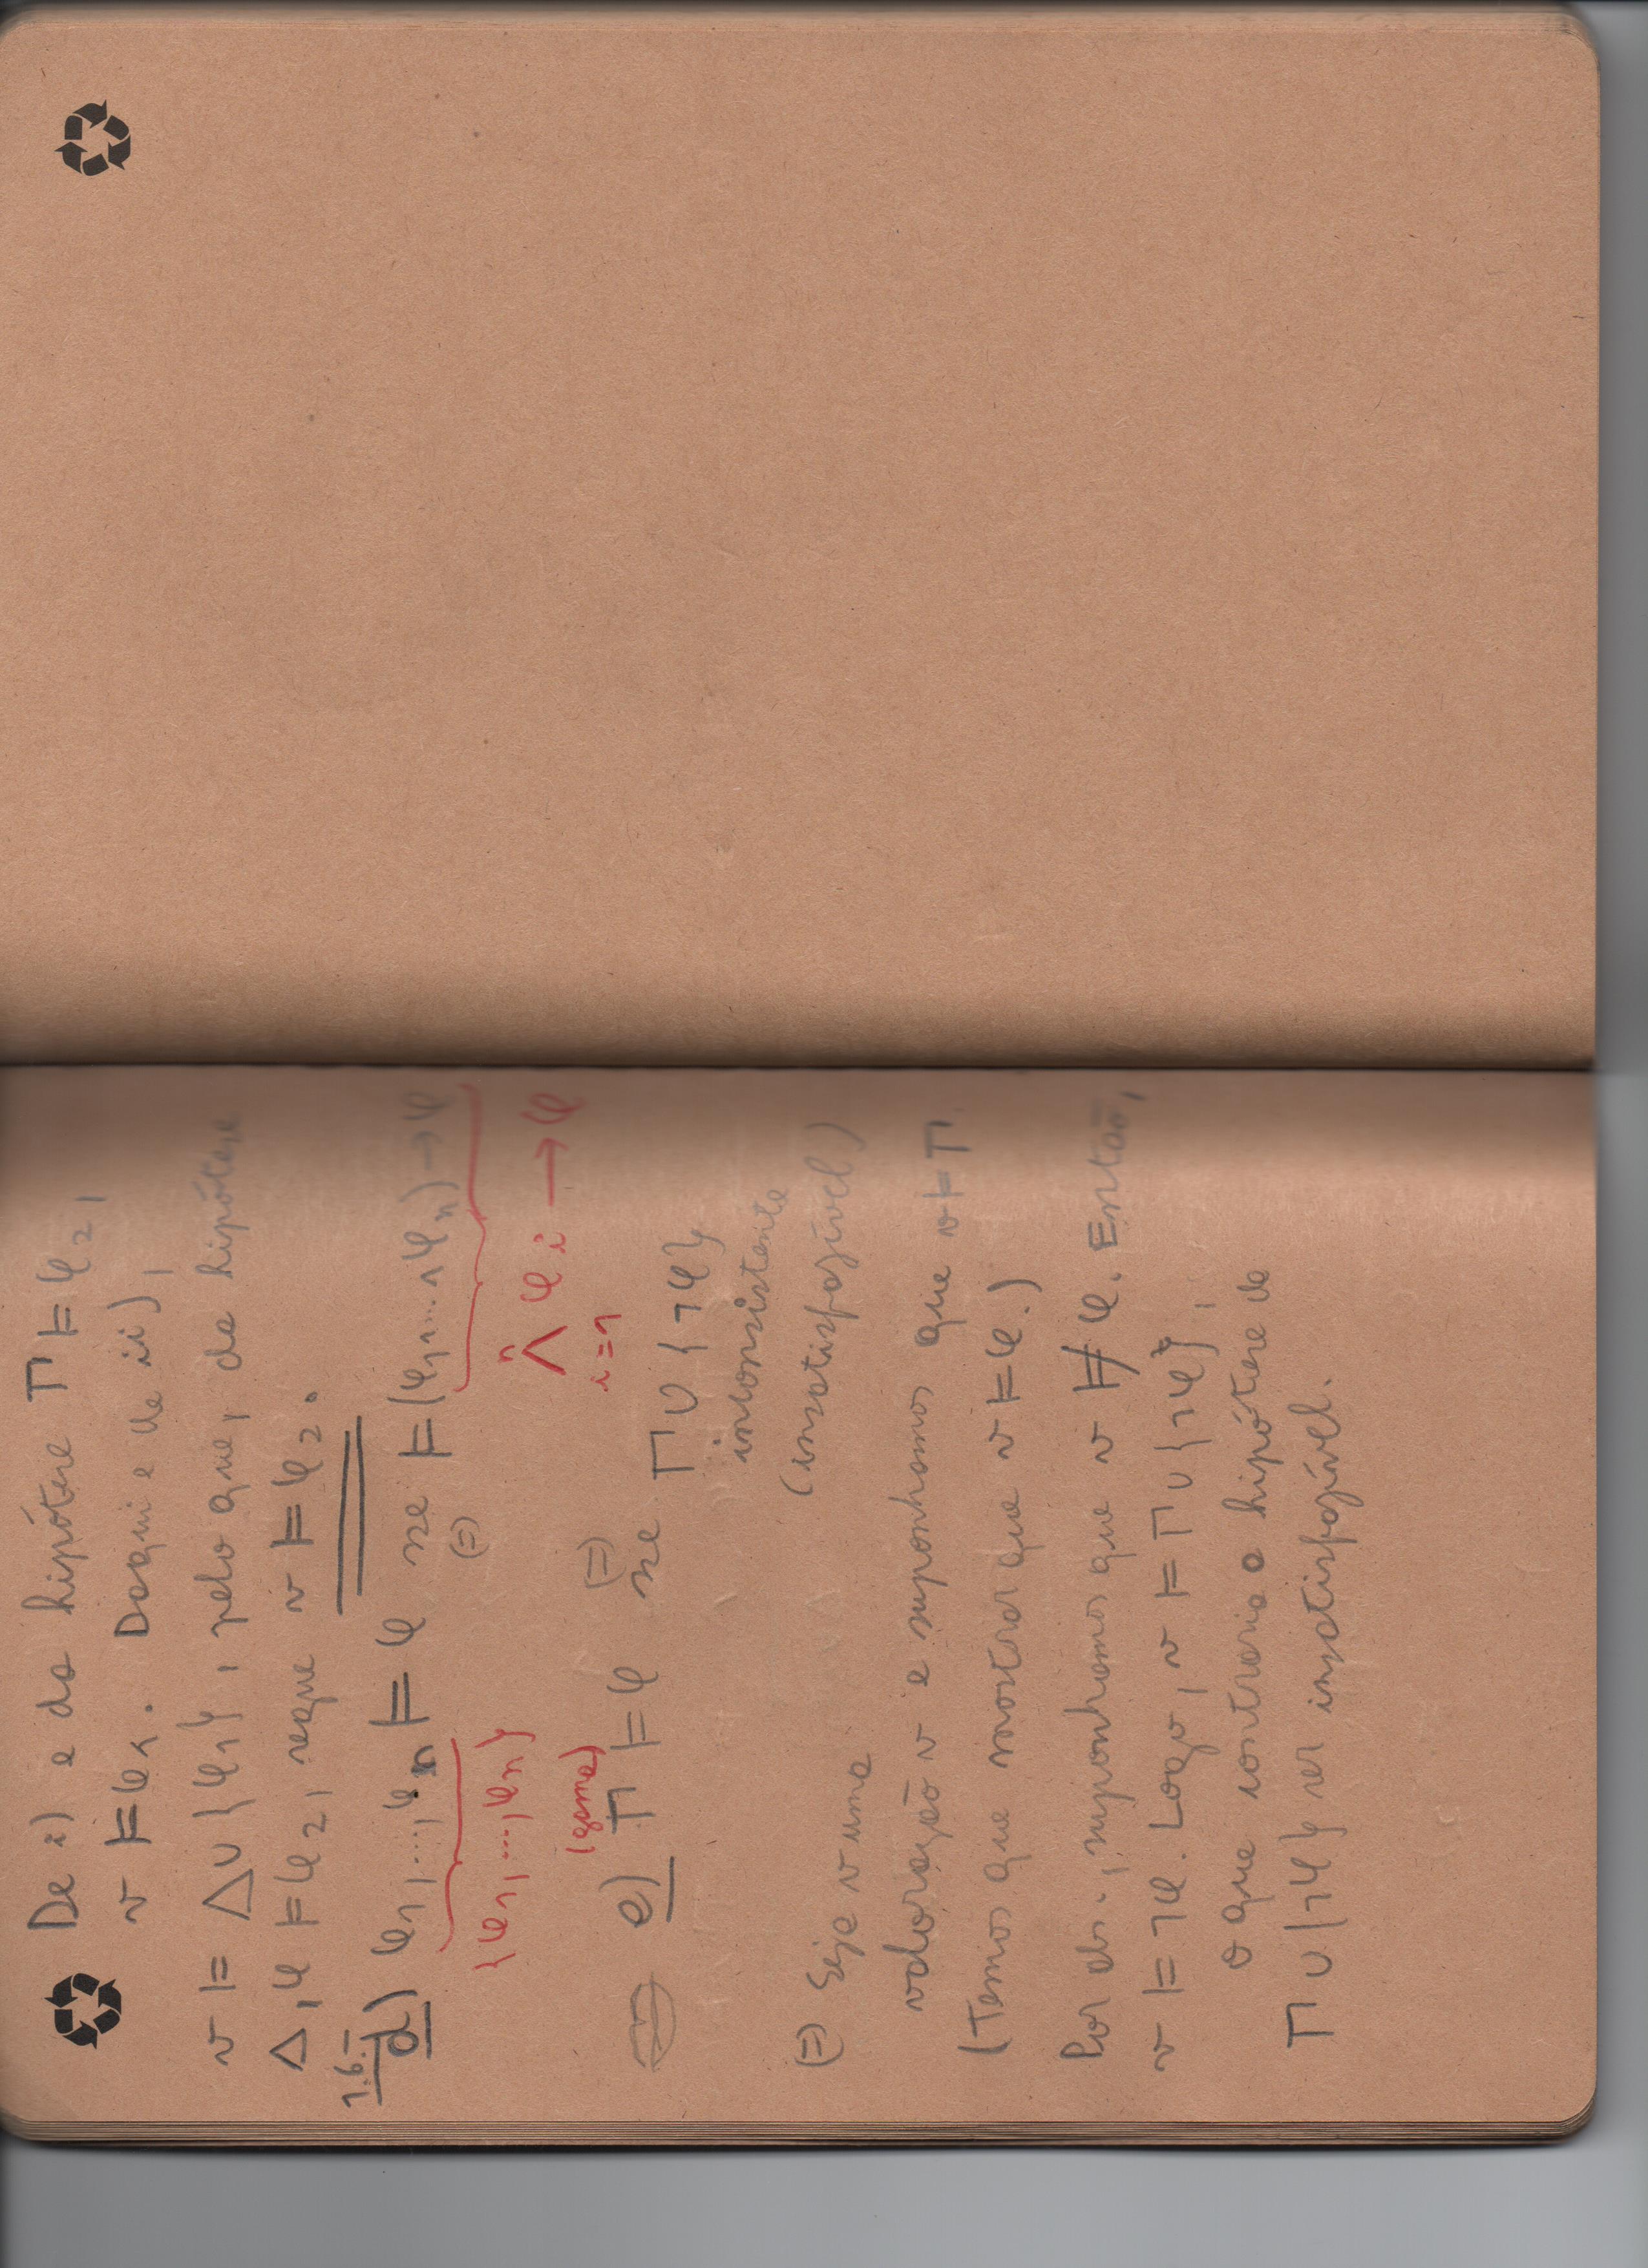 De i) e da hipótese Γ ⊨ φ₂,
v ⊨ φ₁. Daqui e de ii),
v ⊨ Δ∪{φ₁}, pelo que, da hipótese
Δ,φ ⊨ φ₂, segue v ⊨ φ₂.
1.6.-
d) φ₁,...,φₙ ⊨ φ sse ⊨(φ₁∧...∧φₙ)→φ
(=)
{φ₁,...,φₙ}
n
⋀ φi → φ
i=1
(gama) (=)
e) Γ ⊨ φ sse
Γ∪{¬φ}
inconsistente
(insatisfazível)
(=) Seja v uma
valoração v e suponhamos que v ⊨ Γ
(Temos que mostrar que v ⊨ φ.)
Por abs., suponhamos que v ⊭ φ. Então,
v ⊨ ¬φ. Logo, v ⊨ Γ∪{¬φ},
o que contraria a hipótese de
Γ∪{¬φ} ser insatisfazível.